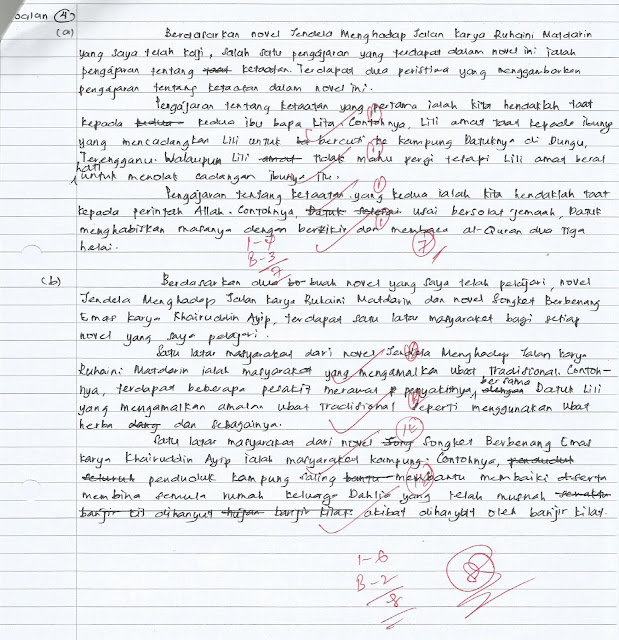 Soalan 4
(a) Berdasarkan novel Jendela Menghadap Jalan karya Ruhaini Matdarin
yang saya telah kaji, salah satu pengajaran yang terdapat dalam novel ini ialah
pengajaran tentang taat ketaatan. Terdapat dua peristiwa yang menggambarkan
pengajaran tentang ketaatan dalam novel ini.
Pengajaran tentang ketaatan yang pertama ialah kita hendaklah taat
kepada kedua kedua ibu bapa kita. Contohnya, Lili amat taat kepada ibunya
yang mencadangkan Lili untuk be bercuti ke kampung Datuknya di Dungu,
Terengganu. Walaupun Lili amat tidak mahu pergi tetapi Lili amat berat
hati
untuk menolak cadangan ibunya itu.
Pengajaran tentang ketaatan yang kedua ialah kita hendaklah taat
kepada perintah Allah. Contohnya, Datuk selepas usai bersolat jemaah, Datuk
menghabiskan masanya dengan berzikir dan membaca al-Quran dua tiga
helai.
I-4
B-3
7
7
(b) Berdasarkan dua bo buah novel yang saya telah pelajari, novel
Jendela Menghadap Jalan karya Ruhaini Matdarin dan novel Songket Berbenang
Emas karya Khairuddin Ayip, terdapat satu latar masyarakat bagi setiap
novel yang saya pelajari.
Satu latar masyarakat dari novel Jendela Menghadap Jalan karya
Ruhaini Matdarin ialah masyarakat yang mengamalkan ubat Tradisional. Contoh-
nya, terdapat beberapa pesakit merawat penyakitnya, dengan Datuk Lili
bersama
yang mengamalkan amalan ubat Tradisional seperti menggunakan ubat
herba dang dan sebagainya.
Satu latar masyarakat dari novel Song Songket Berbenang Emas
karya Khairuddin Ayip ialah masyarakat kampung. Contohnya, penduduk
seluruh penduduk kampung saling bantu membantu membaiki diserta
membina semula rumah keluarga Dahlia yang telah musnah
banjir dihanyut hujan banjir kilat akibat dihanyut oleh banjir kilat.
I-6
B-2
8
8